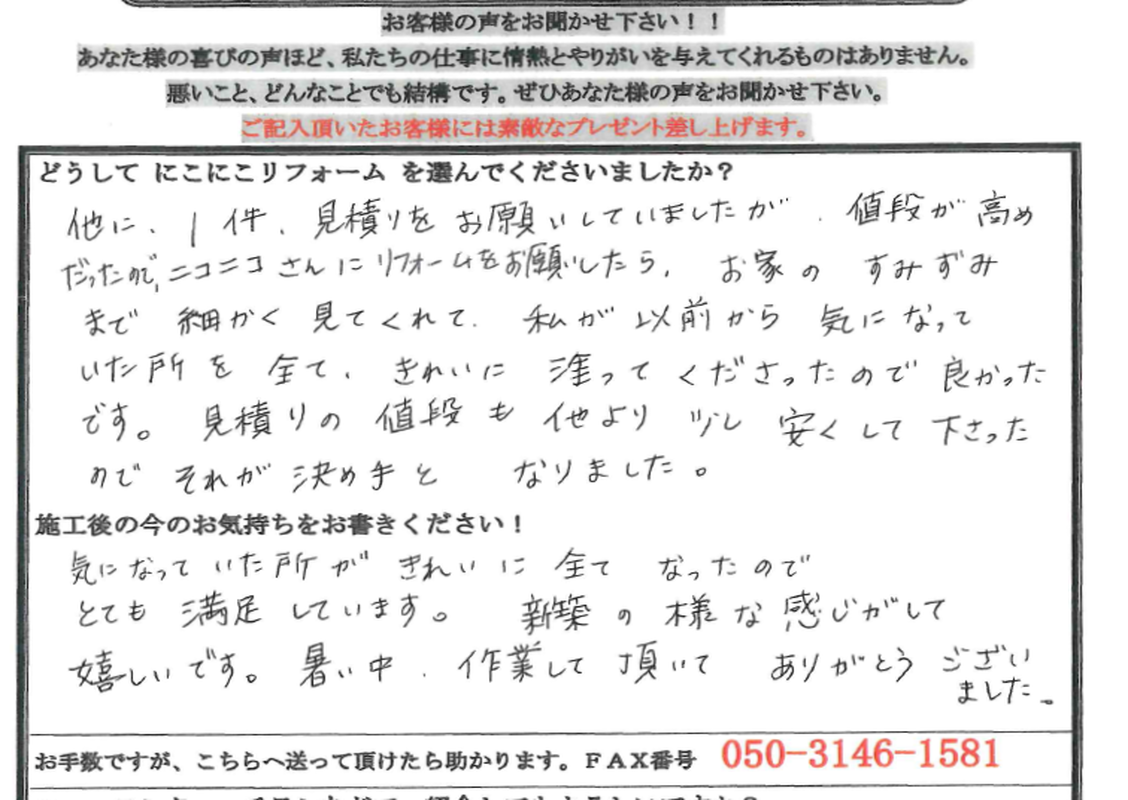 お客様の声をお聞かせ下さい！！
あなた様の喜びの声ほど、私たちの仕事に情熱とやりがいを与えてくれるものはありません。
悪いこと、どんなことでも結構です。ぜひあなた様の声をお聞かせ下さい。
ご記入頂いたお客様には素敵なプレゼント差し上げます。
どうして にこにこリフォーム を選んでくださいましたか？
他に、1件、見積りを お願いしていましたが、値段が高め
だったので、ニコニコさんにリフォームをお願いしたら、お家の すみずみ
まで 細かく 見てくれて、私が以前から 気になって
いた所を 全て、きれいに 塗って くださったので 良かった
です。見積りの値段も 他より 少し 安くして下さった
ので それが 決め手と なりました。
施工後の今のお気持ちをお書きください！
気になって いた所が きれいに 全て なったので
とても 満足 しています。 新築の様な感じがして
嬉しいです。暑い中、作業して頂いて ありがとう ござい
ました。
お手数ですが、こちらへ送って頂けたら助かります。ＦＡＸ番号 050-3146-1581